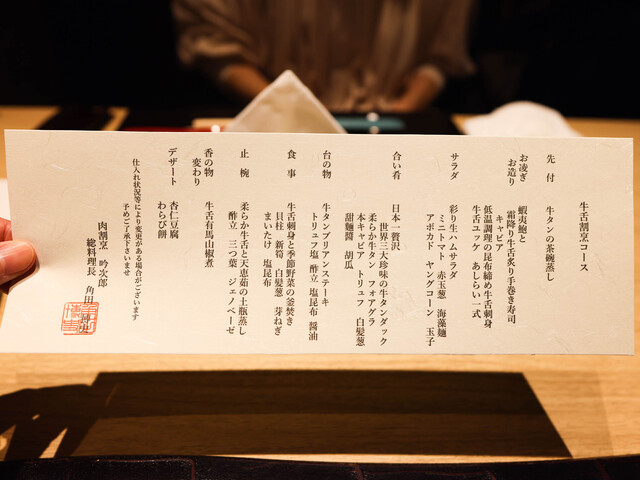 牛舌割烹コース
先付　牛タンの茶碗蒸し
お凌ぎ　蝦夷鮑と
お造り　霜降り牛舌炙り手巻き寿司
キャビア
低温調理の昆布締め牛舌刺身
牛舌ユッケ　あしらい一式
サラダ　彩り生ハムサラダ
ミニトマト　赤玉葱　海藻麺
アボカド　ヤングコーン　玉子
合い肴　日本一贅沢
世界三大珍味の牛タンダック
柔らか牛タン　フォアグラ
本キャビア　トリュフ　白髪葱
甜麺醤　胡瓜
台の物　牛タンブリアンステーキ
トリュフ塩　酢立　塩昆布　醤油
食事　牛舌刺身と季節野菜の釜焚き
貝柱　新筍　白髪葱　芽ねぎ
まいたけ　塩昆布
止椀　柔らか牛舌と天恵茹の土瓶蒸し
酢立　三つ葉　ジェノベーゼ
香の物
変わり　牛舌有馬山椒煮
デザート　杏仁豆腐
わらび餅
仕入れ状況等により変更がある場合がございます
予めご了承下さいませ
肉割烹　吟次郎
総料理長　角田